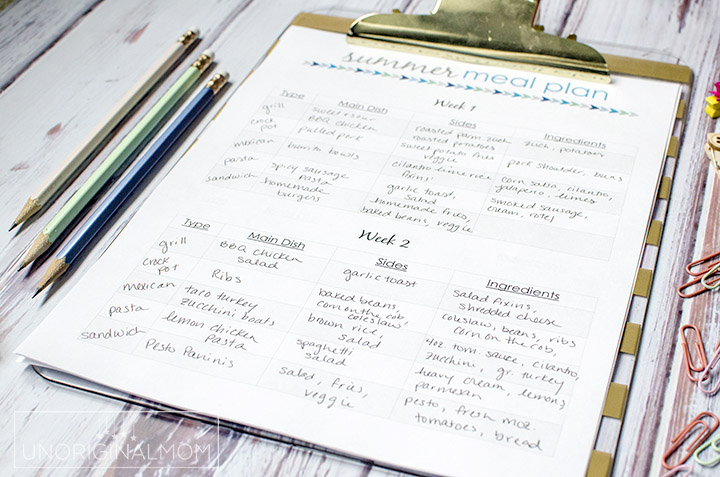 summer meal plan
Week 1
Type Main Dish Sides Ingredients
grill sweet + sour BBQ chicken roasted parm zuck roasted potatoes zuck, potatoes
crock pot pulled pork sweet potato fries veggie pork shoulder, buns
mexican burrito bowls cilantro lime rice fixins corn salsa, cilantro, jalapeno, limes
pasta spicy sausage pasta garlic toast, salad smoked sausage, cream, rotel
sandwich homemade burgers homemade fries, baked beans, veggie
Week 2
Type Main Dish Sides Ingredients
grill BBQ chicken salad garlic toast salad fixins, shredded cheese
crock pot Ribs baked beans, corn on the cob, coleslaw coleslaw, beans, ribs corn on the cob,
mexican taco turkey zucchini boats brown rice, salad 4oz tom. sauce, cilantro, zucchini, gr. turkey
pasta lemon chicken pasta spaghetti salad heavy cream, lemons parmesan
sandwich Pesto Paninis salad, fries, veggie pesto, fresh moz. tomatoes, bread
UNORIGINALMOM